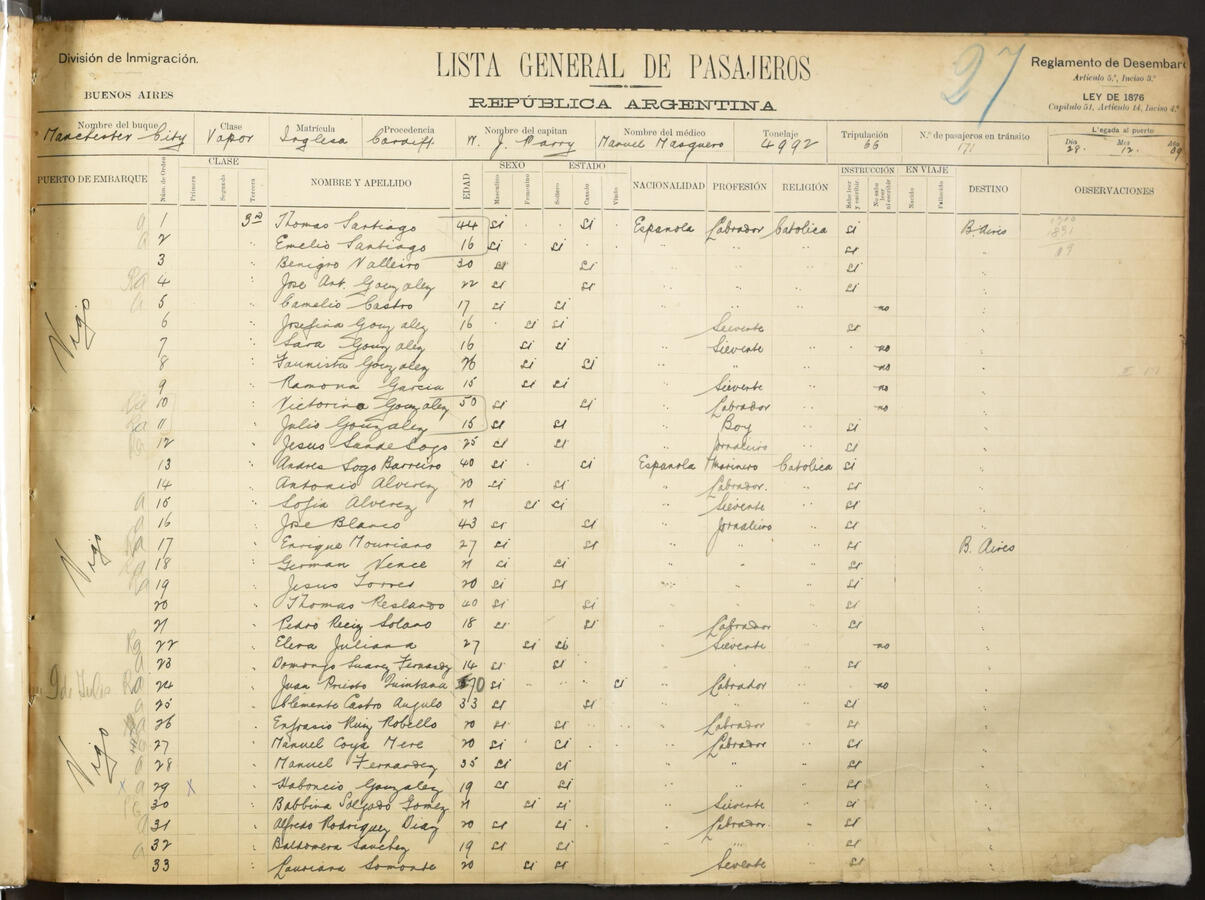 División de Inmigración.
BUENOS AIRES
LISTA GENERAL DE PASAJEROS
REPÚBLICA ARGENTINA
27
Reglamento de Desembarc
Artículo 5.º, Inciso 3.º
LEY DE 1876
Capítulo 51, Artículo 14, Inciso 4.º
Nombre del buque Clase Matrícula Procedencia Nombre del capitan Nombre del médico Tonelaje Tripulación N.º de pasajeros en tránsito Llegada al puerto
Día Mes Año
Manchester City Vapor Inglesa Cardiff W. J. Parry Manuel Masquero 4992 66 171 28. 12. 09
PUERTO DE EMBARQUE Núm. de Orden CLASE Primera Segunda Tercera NOMBRE Y APELLIDO EDAD SEXO Masculino Femenino ESTADO Soltero Casado Viudo NACIONALIDAD PROFESIÓN RELIGIÓN INSTRUCCIÓN Sabe leer y escribir No sabe leer ni escribir EN VIAJE Nacido Fallecido DESTINO OBSERVACIONES
1 3ª Thomas Santiago 44 si si Española Labrador Catolica si B. Aires
2 Emelio Santiago 16 si si si
3 Benigno Valleiro 30 si si si
4 Jose Ant. Gonzalez 22 si si si
5 Camelio Castro 17 si si no
6 Josefina Gonzalez 16 si si Sievente si
7 Sara Gonzalez 16 si si Sievente no
8 Gonzalez 26 si si no
9 Ramona Garcia 15 si si Sievente no
10 Victorino Gonzalez 50 si si Labrador no
11 Julio Gonzalez 15 si si Boy si
12 Jesus Sande Sogo 25 si si Jornaleiro si
13 Andres Sogo Barreiro 40 si si Española Marinero Catolica si
14 Antonio Alverez 20 si si Labrador si
15 Sofia Alverez 21 si si Sievente si
16 Jose Blanco 43 si si Jornaleiro si
17 Enrique Mouriano 27 si si si B. Aires
18 German Vence 21 si si si
19 Jesus Torres 20 si si si
20 Thomas 40 si si si
21 Pedro Solano 18 si si Labrador si
22 Elena Juliana 27 si si Sievente no
23 Domongo Suarez Fernandz 14 si si si
24 Juan Priesto Quintana 70 si si Labrador no
25 Clemente Castro Angulo 33 si si si
26 Enfrasio Ruiz Robello 20 si si Labrador si
27 Manuel Coya Mere 20 si si Labrador si
28 Manuel Fernandez 35 si si si
29 Haboncio Gonzalez 19 si si si
30 Babbina Salgado Gomez 21 si si Sievente si
31 Alfredo Rodriguez Diaz 20 si si Labrador si
32 Baldomera Sanchez 19 si si si
33 Lauriana Somonte 20 si si Sevente si
Vigo
Vigo
Vigo